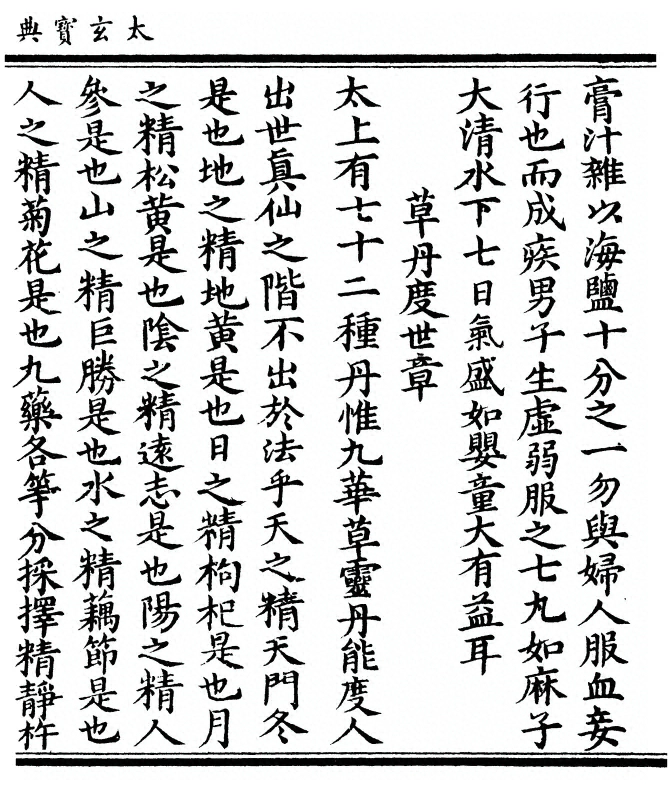 太玄寶典
膏汁雜以海鹽十分之一勿與婦人服血妄
行也而成疾男子生虛弱服之七丸如麻子
大清水下七日氣盛如嬰童大有益耳
草丹度世章
太上有七十二種丹惟九華草靈丹能度人
出世眞仙之階不出於法乎天之精天門冬
是也地之精地黃是也日之精枸杞是也月
之精松黃是也陰之精遠志是也陽之精人
參是也山之精巨勝是也水之精藕節是也
人之精菊花是也九藥各等分採擇精靜杵